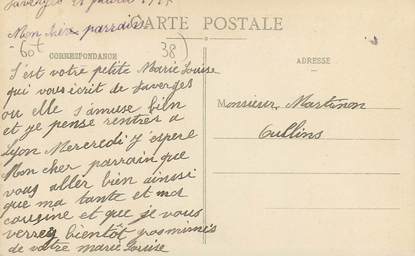 Mon cher parrain
CARTE POSTALE
60f
38)
CORRESPONDANCE
ADRESSE
S'est votre petite Marie Louise
qui vous écrit de Saverges
ou elle s'amuse bien
et je pense rentrer a
Lyon Mercredi J'espere
Mon cher parrain que
vous aller bien ainssi
que ma tante et ma
cousine et que je vous
verrez bientôt
de votre marie Louise
Monsieur Martinon
Oullins